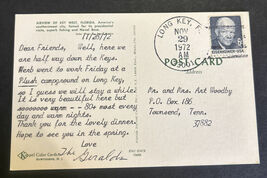 AIRVIEW OF KEY WEST, FLORIDA, America's
southernmost city, famed for its presidential
visits, superb fishing and Naval Base.
11/28/72
Dear Friends, Well, here we
are half way down the Keys.
Went to work Friday at a
Plush campground on Long Key,
so I guess we will stay a while!
It is very beautiful here but
warm -- 80+ most every day
and warm nights.
Thank you for the lovely dinner.
Hope to see you in the spring.
Love
The Geralds
LONG KEY, F
NOV
29
1972
AM
EISENHOWER·USA
POST CARD
Address
Mr. and Mrs. Art Woodby
P.O. Box 186
Townsend, Tenn.
37882
Koppel Color Cards
HAWTHORNE, N. J.